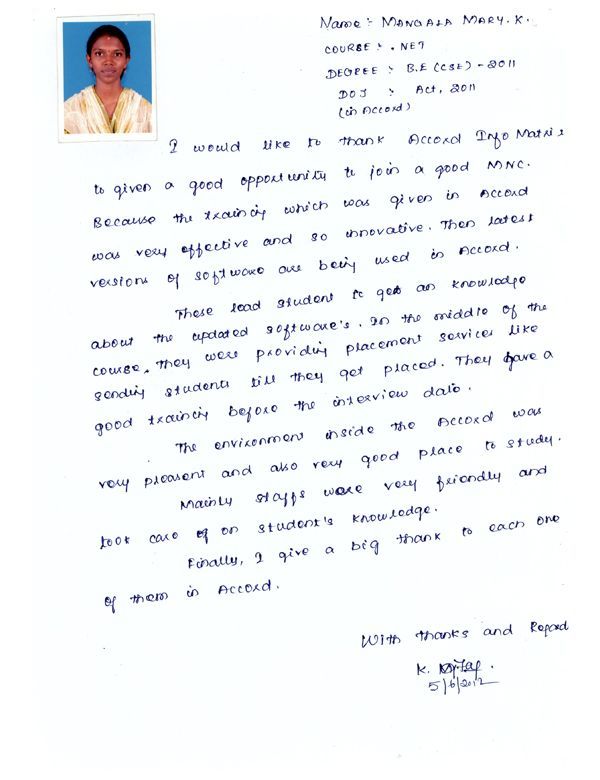 Name :- MANGALA MARY. K.
COURSE :- .NET
DEGREE :- B.E (CSE) - 2011
DOJ :- Oct, 2011
(in Accord)
I would like to thank Accord Info Matrix
to given a good opportunity to join a good MNC.
Because the training which was given in Accord
was very effective and so innovative. Then latest
versions of software are being used in Accord.
These lead student to get an knowledge
about the updated software's. In the middle of the
course, they were providing placement services like
sending students till they get placed. They gave a
good training before the interview date.
The environment inside the Accord was
very pleasent and also very good place to study.
Mainly staffs were very friendly and
took care of on student's knowledge.
Finally, I give a big thank to each one
of them in Accord.
With thanks and Regard
K.
5/6/2012